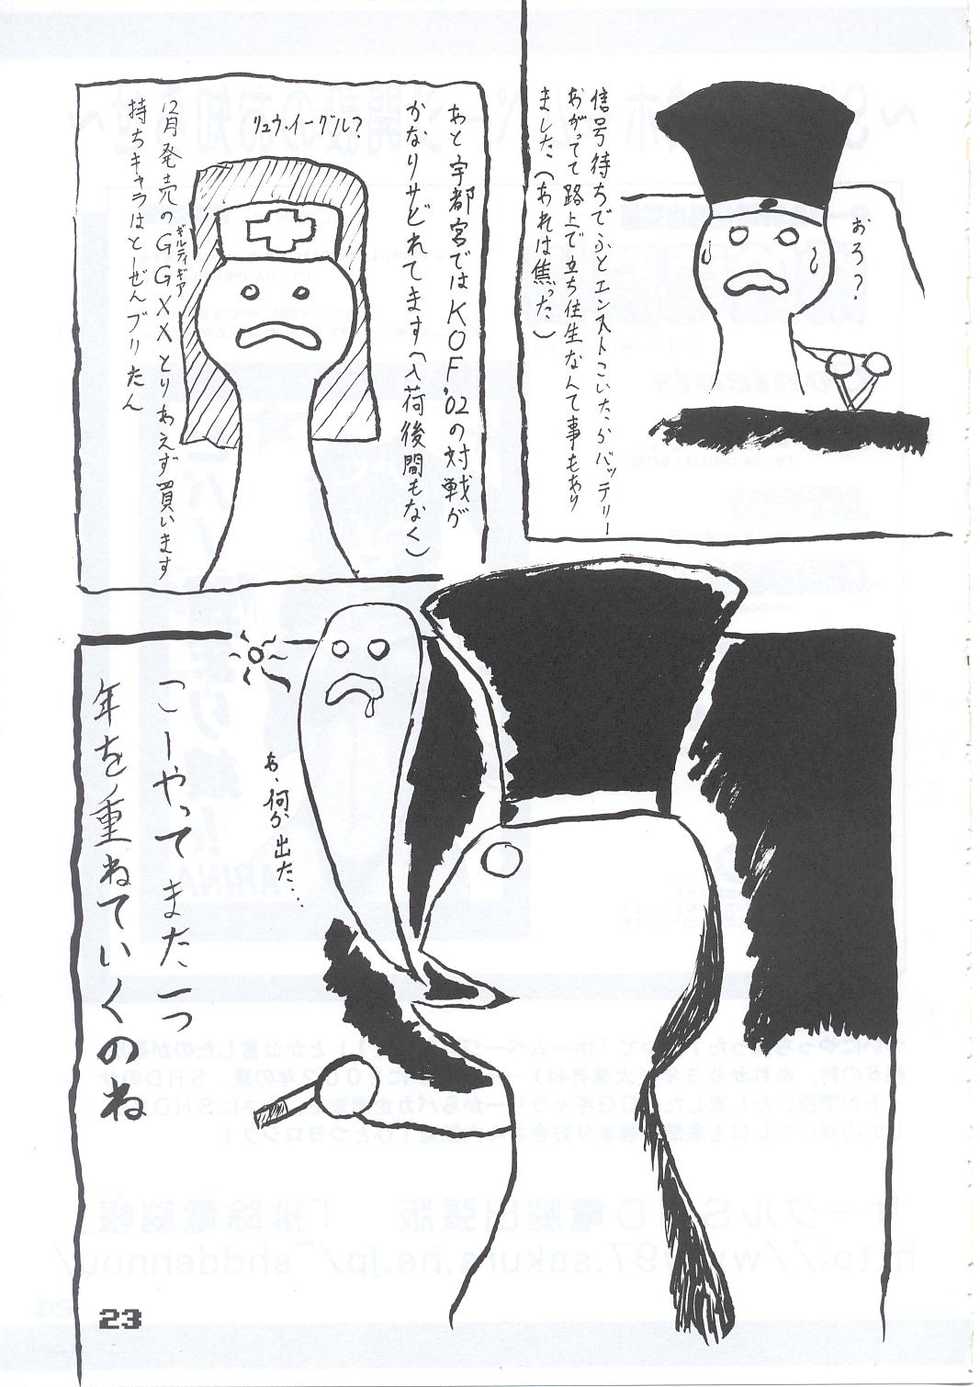 信号待ちでふとエンストこいたらバッテリー
あがってて路上で立ち往生なんて事もあり
ました(あれは焦った)
おろ?
あと宇都宮ではKOF'02の対戦が
かなりサビれてます(入荷後間もなく)
リュウ・イーグル?
12月発売のGGXXとりあえず買います
ギルティギア
持ちキャラはとーぜんブリたん
あ、何か出た…
こーやってまた一つ
年を重ねていくのね
23